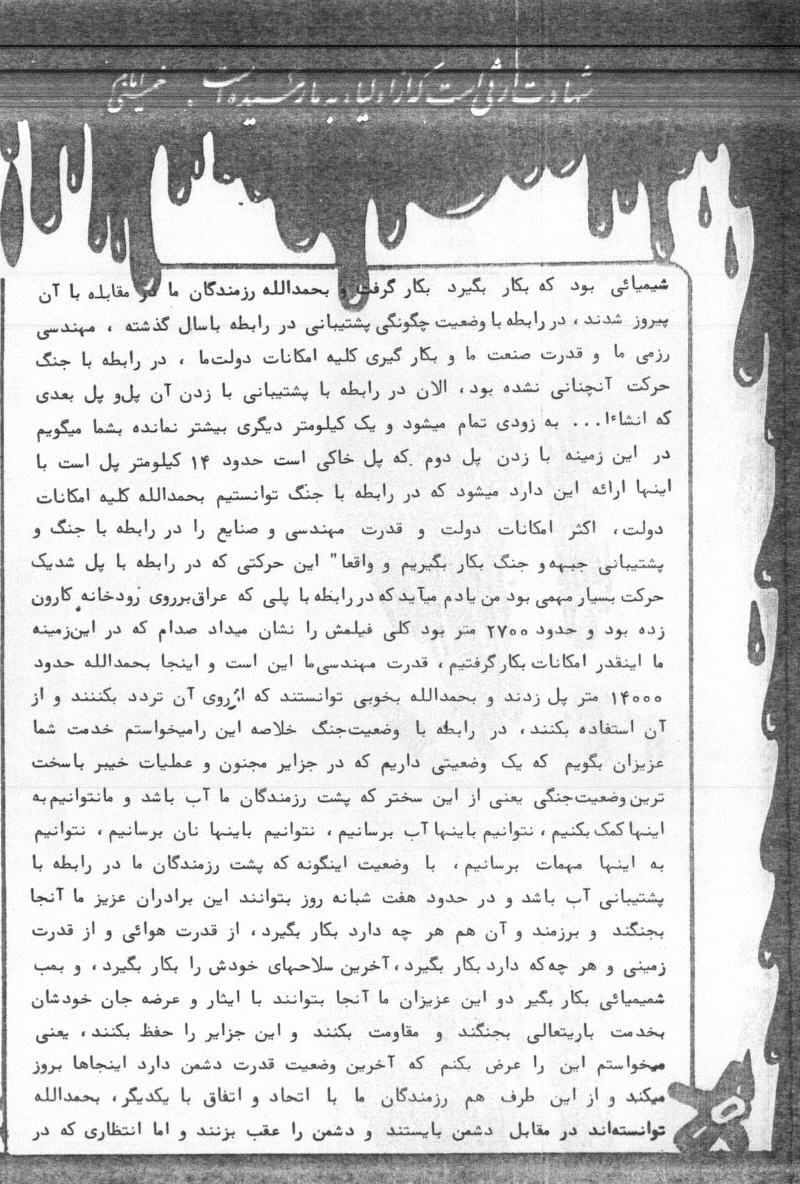 شهادت ارثی است که از اولیاء به ما رسیده است. امام خمینی
شیمیائی بود که بکار بگیرد بکار گرفت و بحمدالله رزمندگان ما در مقابله با آن
پیروز شدند، در رابطه با وضعیت چگونگی پشتیبانی در رابطه باسال گذشته ، مهندسی
رزمی ما و قدرت صنعت ما و بکار گیری کلیه امکانات دولت‌ما ، در رابطه با جنگ
حرکت آنچنانی نشده بود، الان در رابطه با پشتیبانی با زدن آن پل‌و پل بعدی
که انشاءا... به زودی تمام میشود و یک کیلومتر دیگری بیشتر نمانده بشما میگویم
در این زمینه با زدن پل دوم که پل خاکی است حدود ۱۴ کیلومتر پل است با
اینها ارائه این دارد میشود که در رابطه با جنگ توانستیم بحمدالله کلیه امکانات
دولت، اکثر امکانات دولت و قدرت مهندسی و صنایع را در رابطه با جنگ و
پشتیبانی جبهه‌و جنگ بکار بگیریم و واقعا" این حرکتی که در رابطه با پل شدیک
حرکت بسیار مهمی بود من یادم میآید که در رابطه با پلی که عراق‌برروی رودخانه کارون
زده بود و حدود ۲۷۰۰ متر بود کلی فیلمش را نشان میداد صدام که در این‌زمینه
ما اینقدر امکانات بکار گرفتیم ، قدرت مهندسی‌ما این است و اینجا بحمدالله حدود
۱۴۰۰۰ متر پل زدند و بحمدالله بخوبی توانستند که از روی آن تردد بکننند و از
آن استفاده بکنند، در رابطه با وضعیت‌جنگ خلاصه این رامیخواستم خدمت شما
عزیزان بگویم که یک وضعیتی داریم که در جزایر مجنون و عملیات خیبر باسخت
ترین وضعیت‌جنگی یعنی از این سختر که پشت رزمندگان ما آب باشد و مانتوانیم‌به
اینها کمک بکنیم ، نتوانیم باینها آب برسانیم ، نتوانیم باینها نان برسانیم ، نتوانیم
به اینها مهمات برسانیم، با وضعیت اینگونه که پشت رزمندگان ما در رابطه با
پشتیبانی آب باشد و در حدود هفت شبانه روز بتوانند این برادران عزیز ما آنجا
بجنگند و برزمند و آن هم هر چه دارد بکار بگیرد، از قدرت هوائی و از قدرت
زمینی و هر چه‌که دارد بکار بگیرد ،آخرین سلاحهای خودش را بکار بگیرد، و بمب
شمیمیائی بکار بگیر دو این عزیزان ما آنجا بتوانند با ایثار و عرضه جان خودشان
بخدمت باریتعالی بجنگند و مقاومت بکنند و این جزایر را حفظ بکنند، یعنی
میخواستم این را عرض بکنم که آخرین وضعیت قدرت دشمن دارد اینجاها بروز
میکند و از این طرف هم رزمندگان ما با اتحاد و اتفاق با یکدیگر، بحمدالله
توانسته‌اند در مقابل دشمن بایستند و دشمن را عقب بزنند و اما انتظاری که در